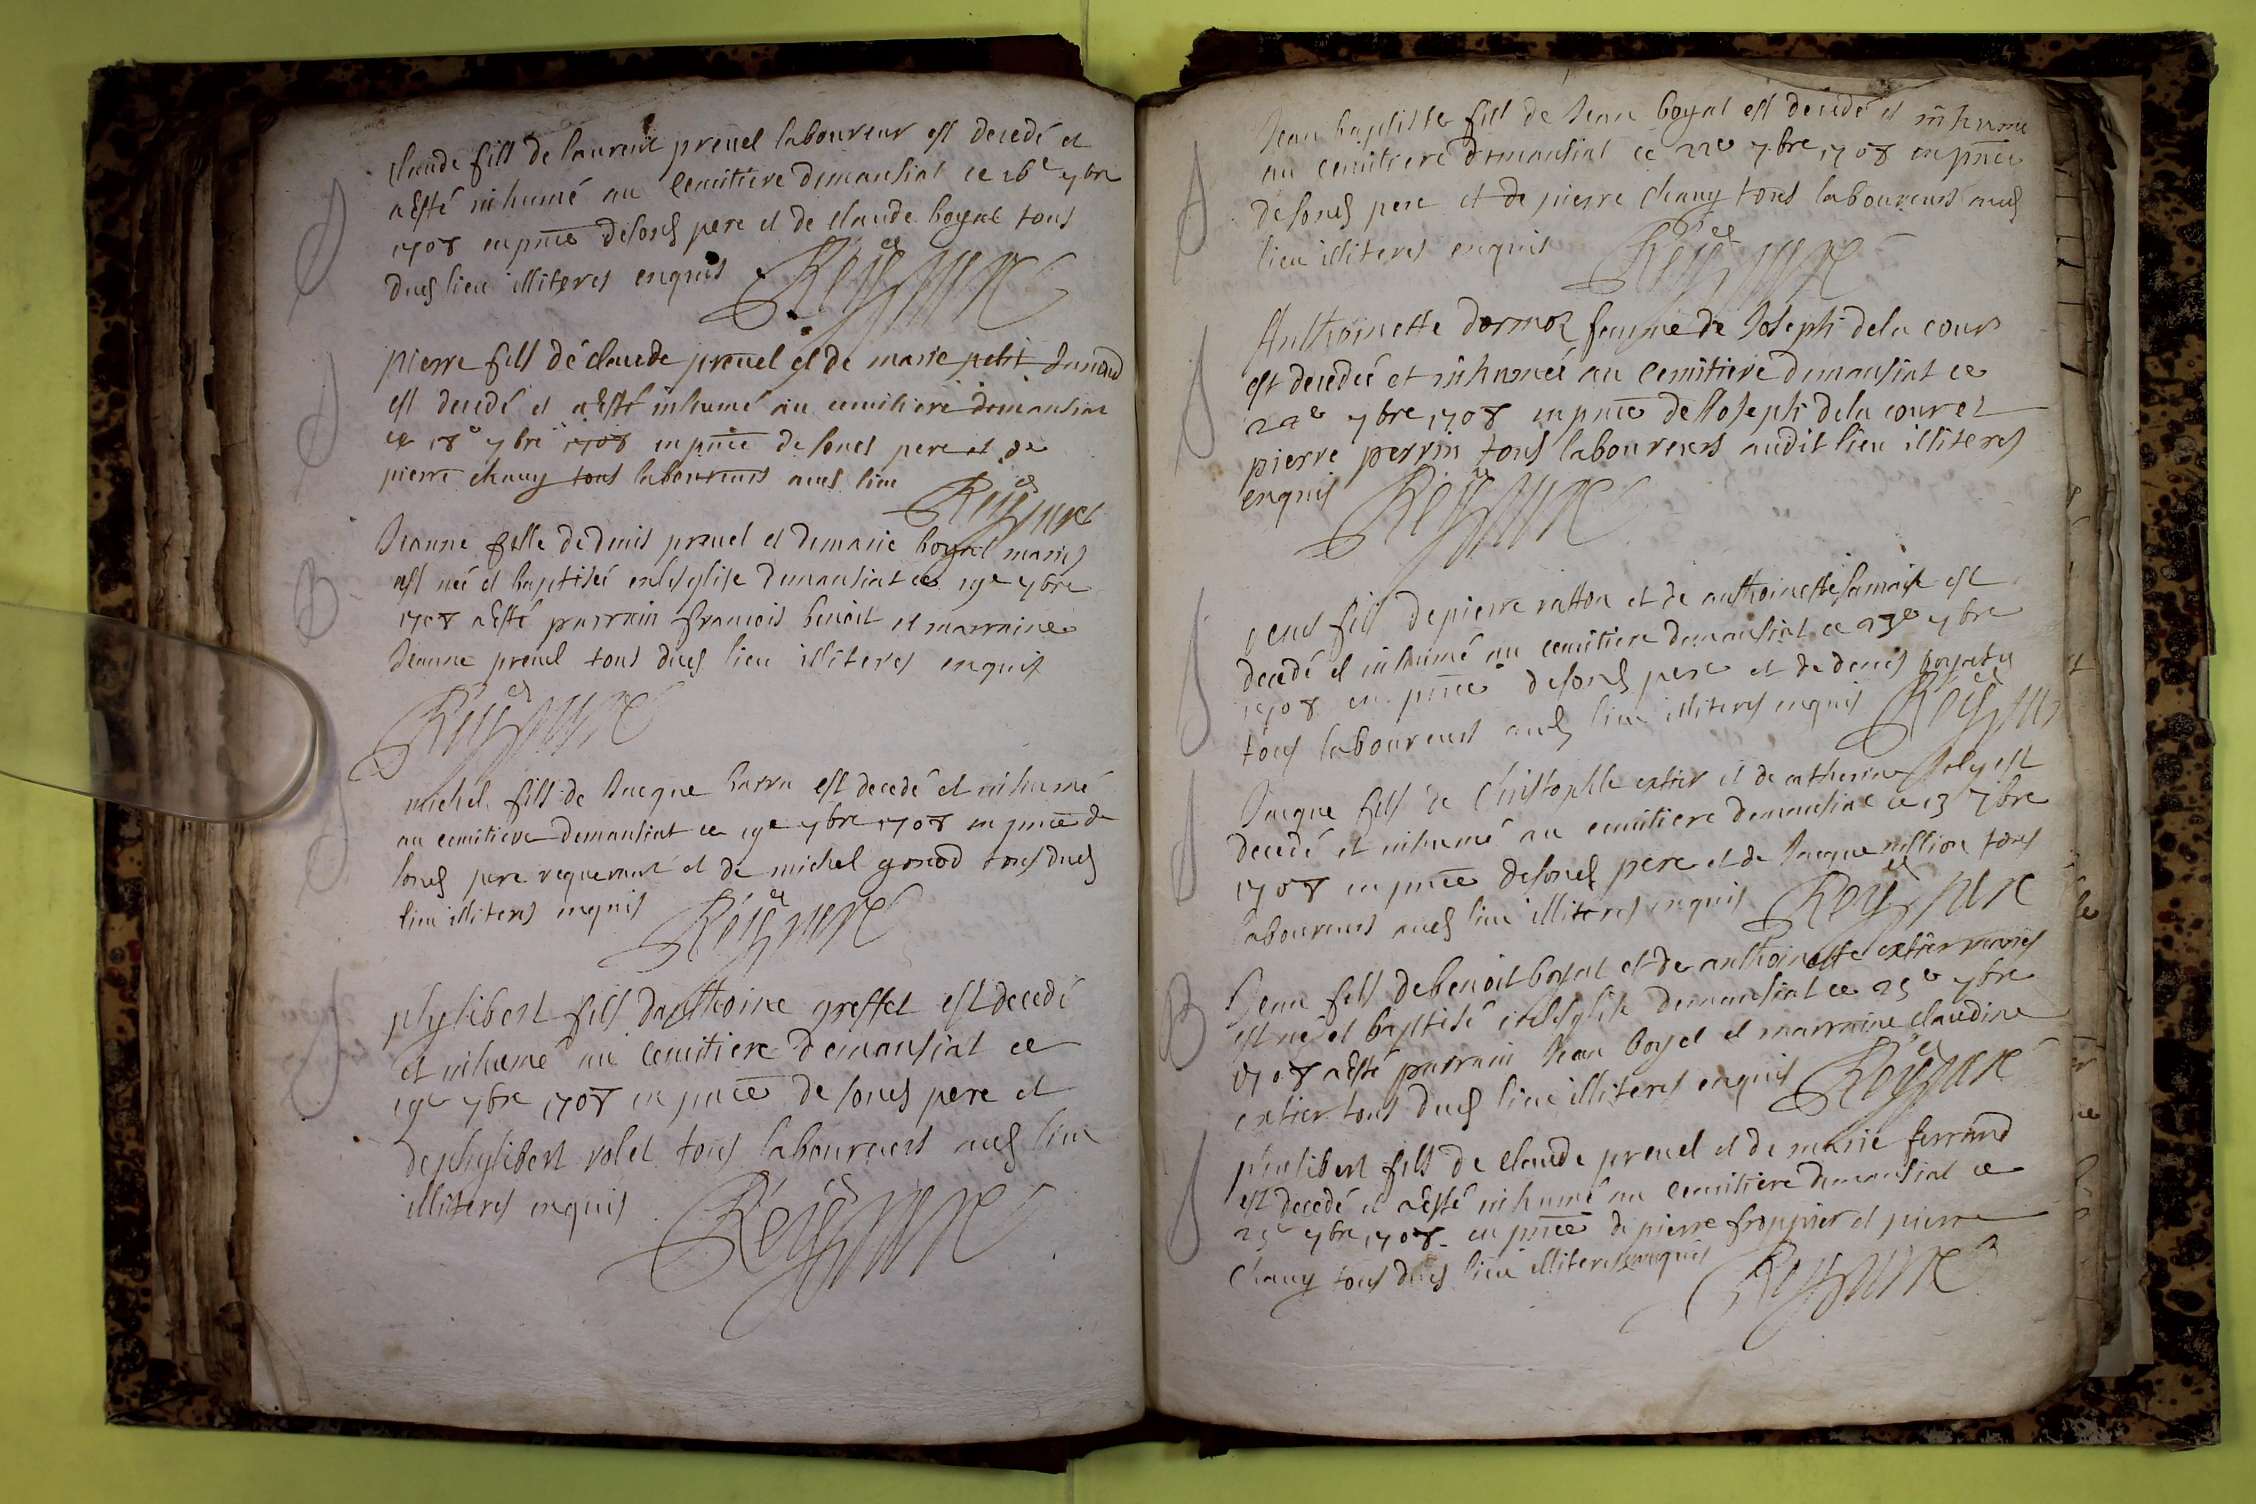 Claude fils de laurent preuel laboureur est decedé et
a esté inhumé au Cemitiere demansiat ce 16e 7bre
1708 en pnce desond pere et de claude boyat tous
dud lieu illiteres enquis Reÿ curé
pierre fils de claude preuel et de marie petit
est decedé et a esté inhumé au cemitiere demansiat
ce 18e 7bre 1708 en pnce de sond pere et de
pierre chauy tous laboureurs aud lieu
Reÿ curé
Jeanne fille de denis preuel et demarie boyat mariés
est neé et baptiseé en lesglise demansiat ce 19e 7bre
1708 a esté parrain francois benoit et marraine
Jeanne preuel tous dud lieu illiteres enquis
Reÿ curé
michel fils de Jacque barra est decedé et inhumé
au cemitiere demansiat ce 19e 7bre 1708 en pnce de
sond pere requerant et de michel gonod tous dud
lieu illiteres enquis Reÿ curé
phylibert fils danthoine greffet est decedé
et inhumé au cemitiere demansiat ce
19e 7bre 1708 en pnce de sond pere et
de phylibert volet tous laboureurs aud lieu
illiteres enquis Reÿ curé
Jean baptiste fils de Jean boyat est decedé et inhumé
au cemitiere demansiat ce 22e 7bre 1708 en pnce
desond pere et de pierre chauy tous laboureurs aud
lieu illiteres enquis Reÿ curé
Anthoinette femme de Joseph dela cour
est decedeé et inhumeé au Cemitiere demansiat ce
22e 7bre 1708 en pnce de Joseph dela cour et
pierre perrin tous laboureurs audit lieu illiteres
enquis Reÿ curé
fils depierre ratton et de anthoinette est
decedé et inhumé au cemitiere demansiat ce 23e 7bre
1708 en pnce desond pere et de denis
tous laboureurs aud lieu illiteres enquis Reÿ curé
Jacque fils de Christophle extier et de catherine Joly est
decedé et inhumé au cemitiere demansiat ce 23 7bre
1708 en pnce desond pere et de Jacque tous
laboureurs aud lieu illiteres enquis Reÿ curé
B Jean fils debenoit boyat et de anthoinette extier mariés
est né et baptisé en lesglise demansiat ce 25e 7bre
1708 a esté parrain Jean boyat et marraine claudine
extier tous dud lieu illiteres enquis Reÿ curé
philibert fils de claude preuel et de marie ferrand
est decedé et a esté inhumé au cemitiere demansiat ce
25e 7bre 1708 en pnce de pierre froppier et pierre
Chauy tous dud lieu illiteres enquis
Reÿ curé